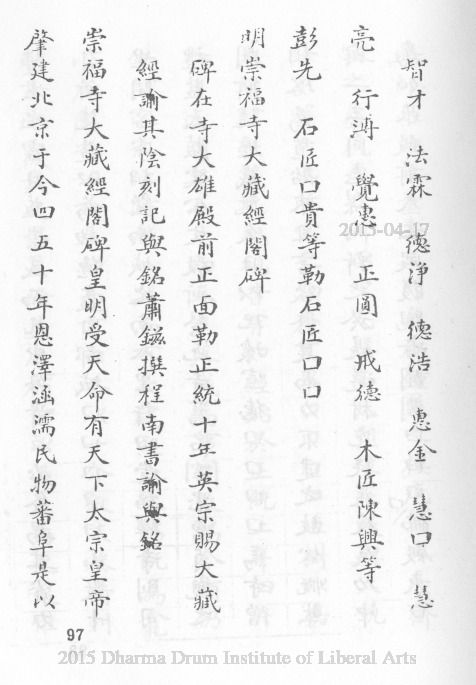 智才 法霖 德淨 德浩 惠金 慧口 慧
亮 行溥 覺惠 正圓 戒德 木匠陳興等
彭先 石匠口貴等勒石匠口口
明崇福寺大藏經閣碑
碑在寺大雄殿前正面勒正統十年英宗賜大藏
經諭其陰刻記與銘蕭鎡撰程南書諭與銘
崇福寺大藏經閣碑皇明受天命有天下太宗皇帝
肇建北京于今四五十年恩澤涵濡民物蕃阜是以
97
2015-04-17
2015 Dharma Drum Institute of Liberal Arts